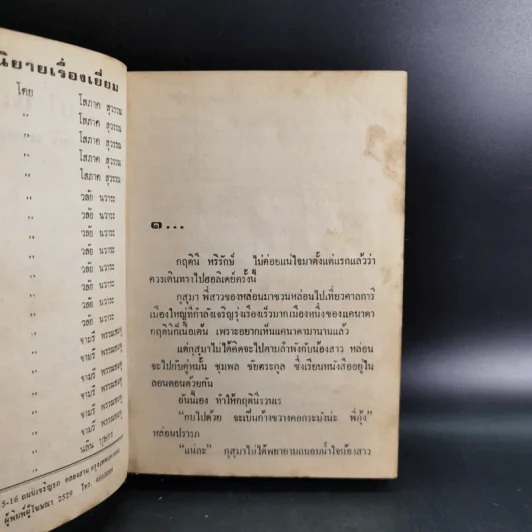 นิยายเรื่องเยี่ยม
โดย โสภาค สุวรรณ
” โสภาค สุวรรณ
” โสภาค สุวรรณ
” โสภาค สุวรรณ
” โสภาค สุวรรณ
” วลัย นวาระ
” วลัย นวาระ
” วลัย นวาระ
” วลัย นวาระ
” วลัย นวาระ
” วลัย นวาระ
” วลัย นวาระ
” จามรี พรรณชมพู
” จามรี พรรณชมพู
” จามรี พรรณชมพู
” จามรี พรรณชมพู
” จามรี พรรณชมพู
” นลิน
5-16 ถนนเจริญรถ คลองสาน กรุงเทพ
ผู้พิมพ์ผู้โฆษณา 2529 โทร.
๑...
กฤตินี หริรักษ์ ไม่ค่อยแน่ใจมาตั้งแต่แรกแล้วว่า
ควรเดินทางไปฮอลิเดย์ครั้งนี้
กุสุมา พี่สาวของหล่อนมาชวนหล่อนไปเที่ยวคาลการี
เมืองใหญ่ที่กำลังเจริญรุ่งเรืองเร็วมากเมืองหนึ่งของแคนาดา
กฤตินีก็เนื้อเต้น เพราะอยากเห็นแคนาดามานานแล้ว
แต่กุสุมาไม่ได้คิดจะไปตามลำพังกับน้องสาว หล่อน
จะไปกับคู่หมั้น ชุมพล ชัยตระกูล ซึ่งเรียนหนังสืออยู่ใน
ลอนดอนด้วยกัน
อันนี้เอง ทำให้กฤตินีรวนเร
“กบไปด้วย จะเป็นก้างขวางคอกระมังน่ะ พี่กุ้ง”
หล่อนปรารภ
“แน่ละ” กุสุมาไม่ได้พยายามถนอมน้ำใจน้องสาว